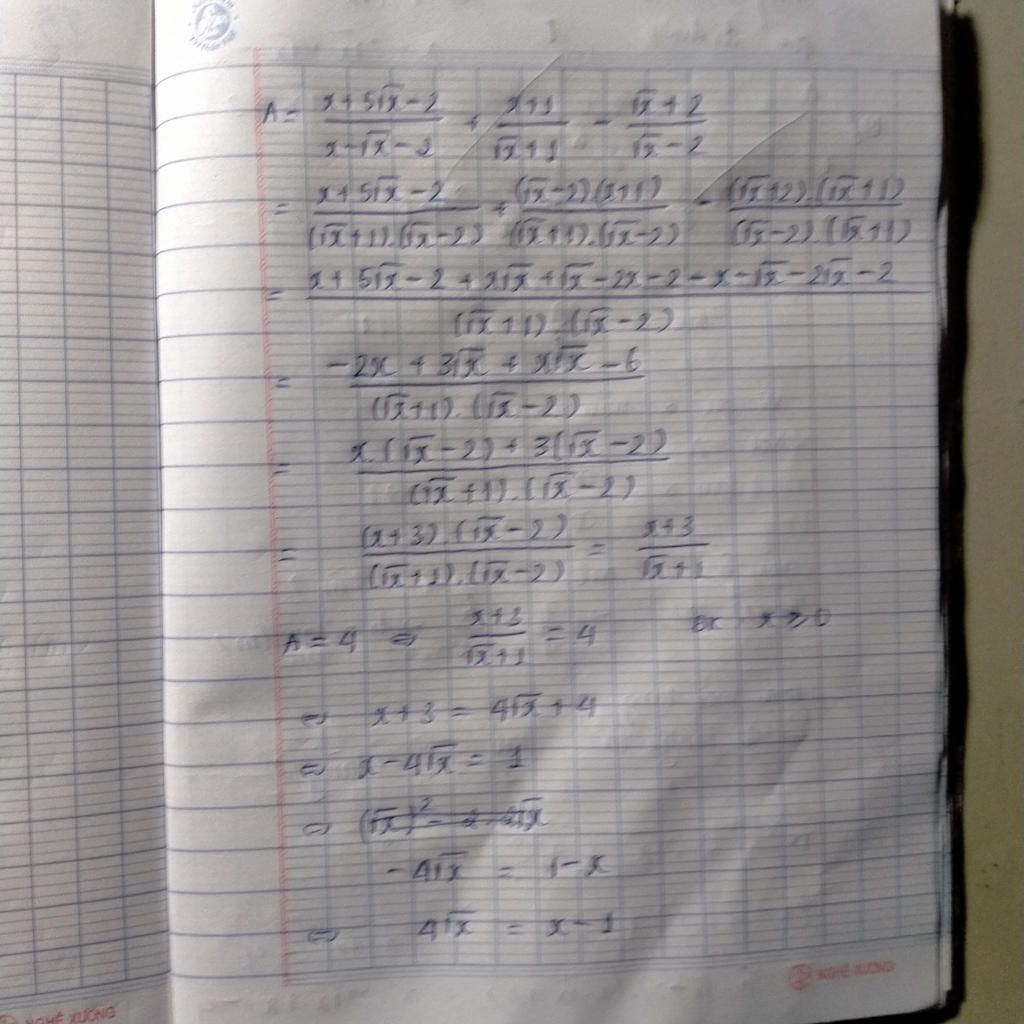 A = \frac{x+5\sqrt{x}-2}{x-\sqrt{x}-2} + \frac{x+1}{\sqrt{x}+1} - \frac{\sqrt{x}+2}{\sqrt{x}-2}
= \frac{x+5\sqrt{x}-2}{(\sqrt{x}+1).(\sqrt{x}-2)} + \frac{(\sqrt{x}-2)(x+1)}{(\sqrt{x}+1).(\sqrt{x}-2)} - \frac{(\sqrt{x}+2).(\sqrt{x}+1)}{(\sqrt{x}-2).(\sqrt{x}+1)}
= \frac{x+5\sqrt{x}-2+x\sqrt{x}+\sqrt{x}-2x-2-x-\sqrt{x}-2\sqrt{x}-2}{(\sqrt{x}+1).(\sqrt{x}-2)}
= \frac{-2x+3\sqrt{x}+x\sqrt{x}-6}{(\sqrt{x}+1).(\sqrt{x}-2)}
= \frac{x.(\sqrt{x}-2)+3(\sqrt{x}-2)}{(\sqrt{x}+1).(\sqrt{x}-2)}
= \frac{(x+3).(\sqrt{x}-2)}{(\sqrt{x}+1).(\sqrt{x}-2)} = \frac{x+3}{\sqrt{x}+1}
A = 4 ⇔ \frac{x+3}{\sqrt{x}+1} = 4 x ≥ 0
⇔ x+3 = 4\sqrt{x}+4
⇔ x-4\sqrt{x} = 1
⇔ (\sqrt{x})^2 - 2
-4\sqrt{x} = 1-x
⇔ 4\sqrt{x} = x-1
NGHÊ XƯƠNG
NGHÊ XƯƠNG